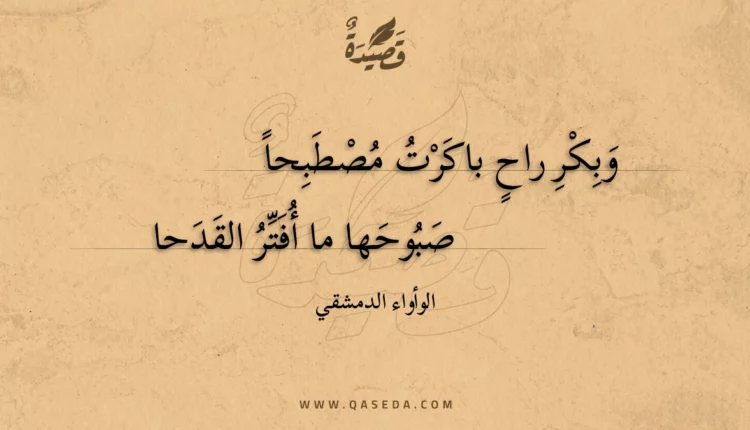 قَصِيْدَةٌ
وَبِكْرِ راحٍ باكَرْتُ مُصْطَبِحاً
صَبُوحَها ما أُفَتِّرُ القَدَحا
الوأواء الدمشقي
WWW.QASEDA.COM